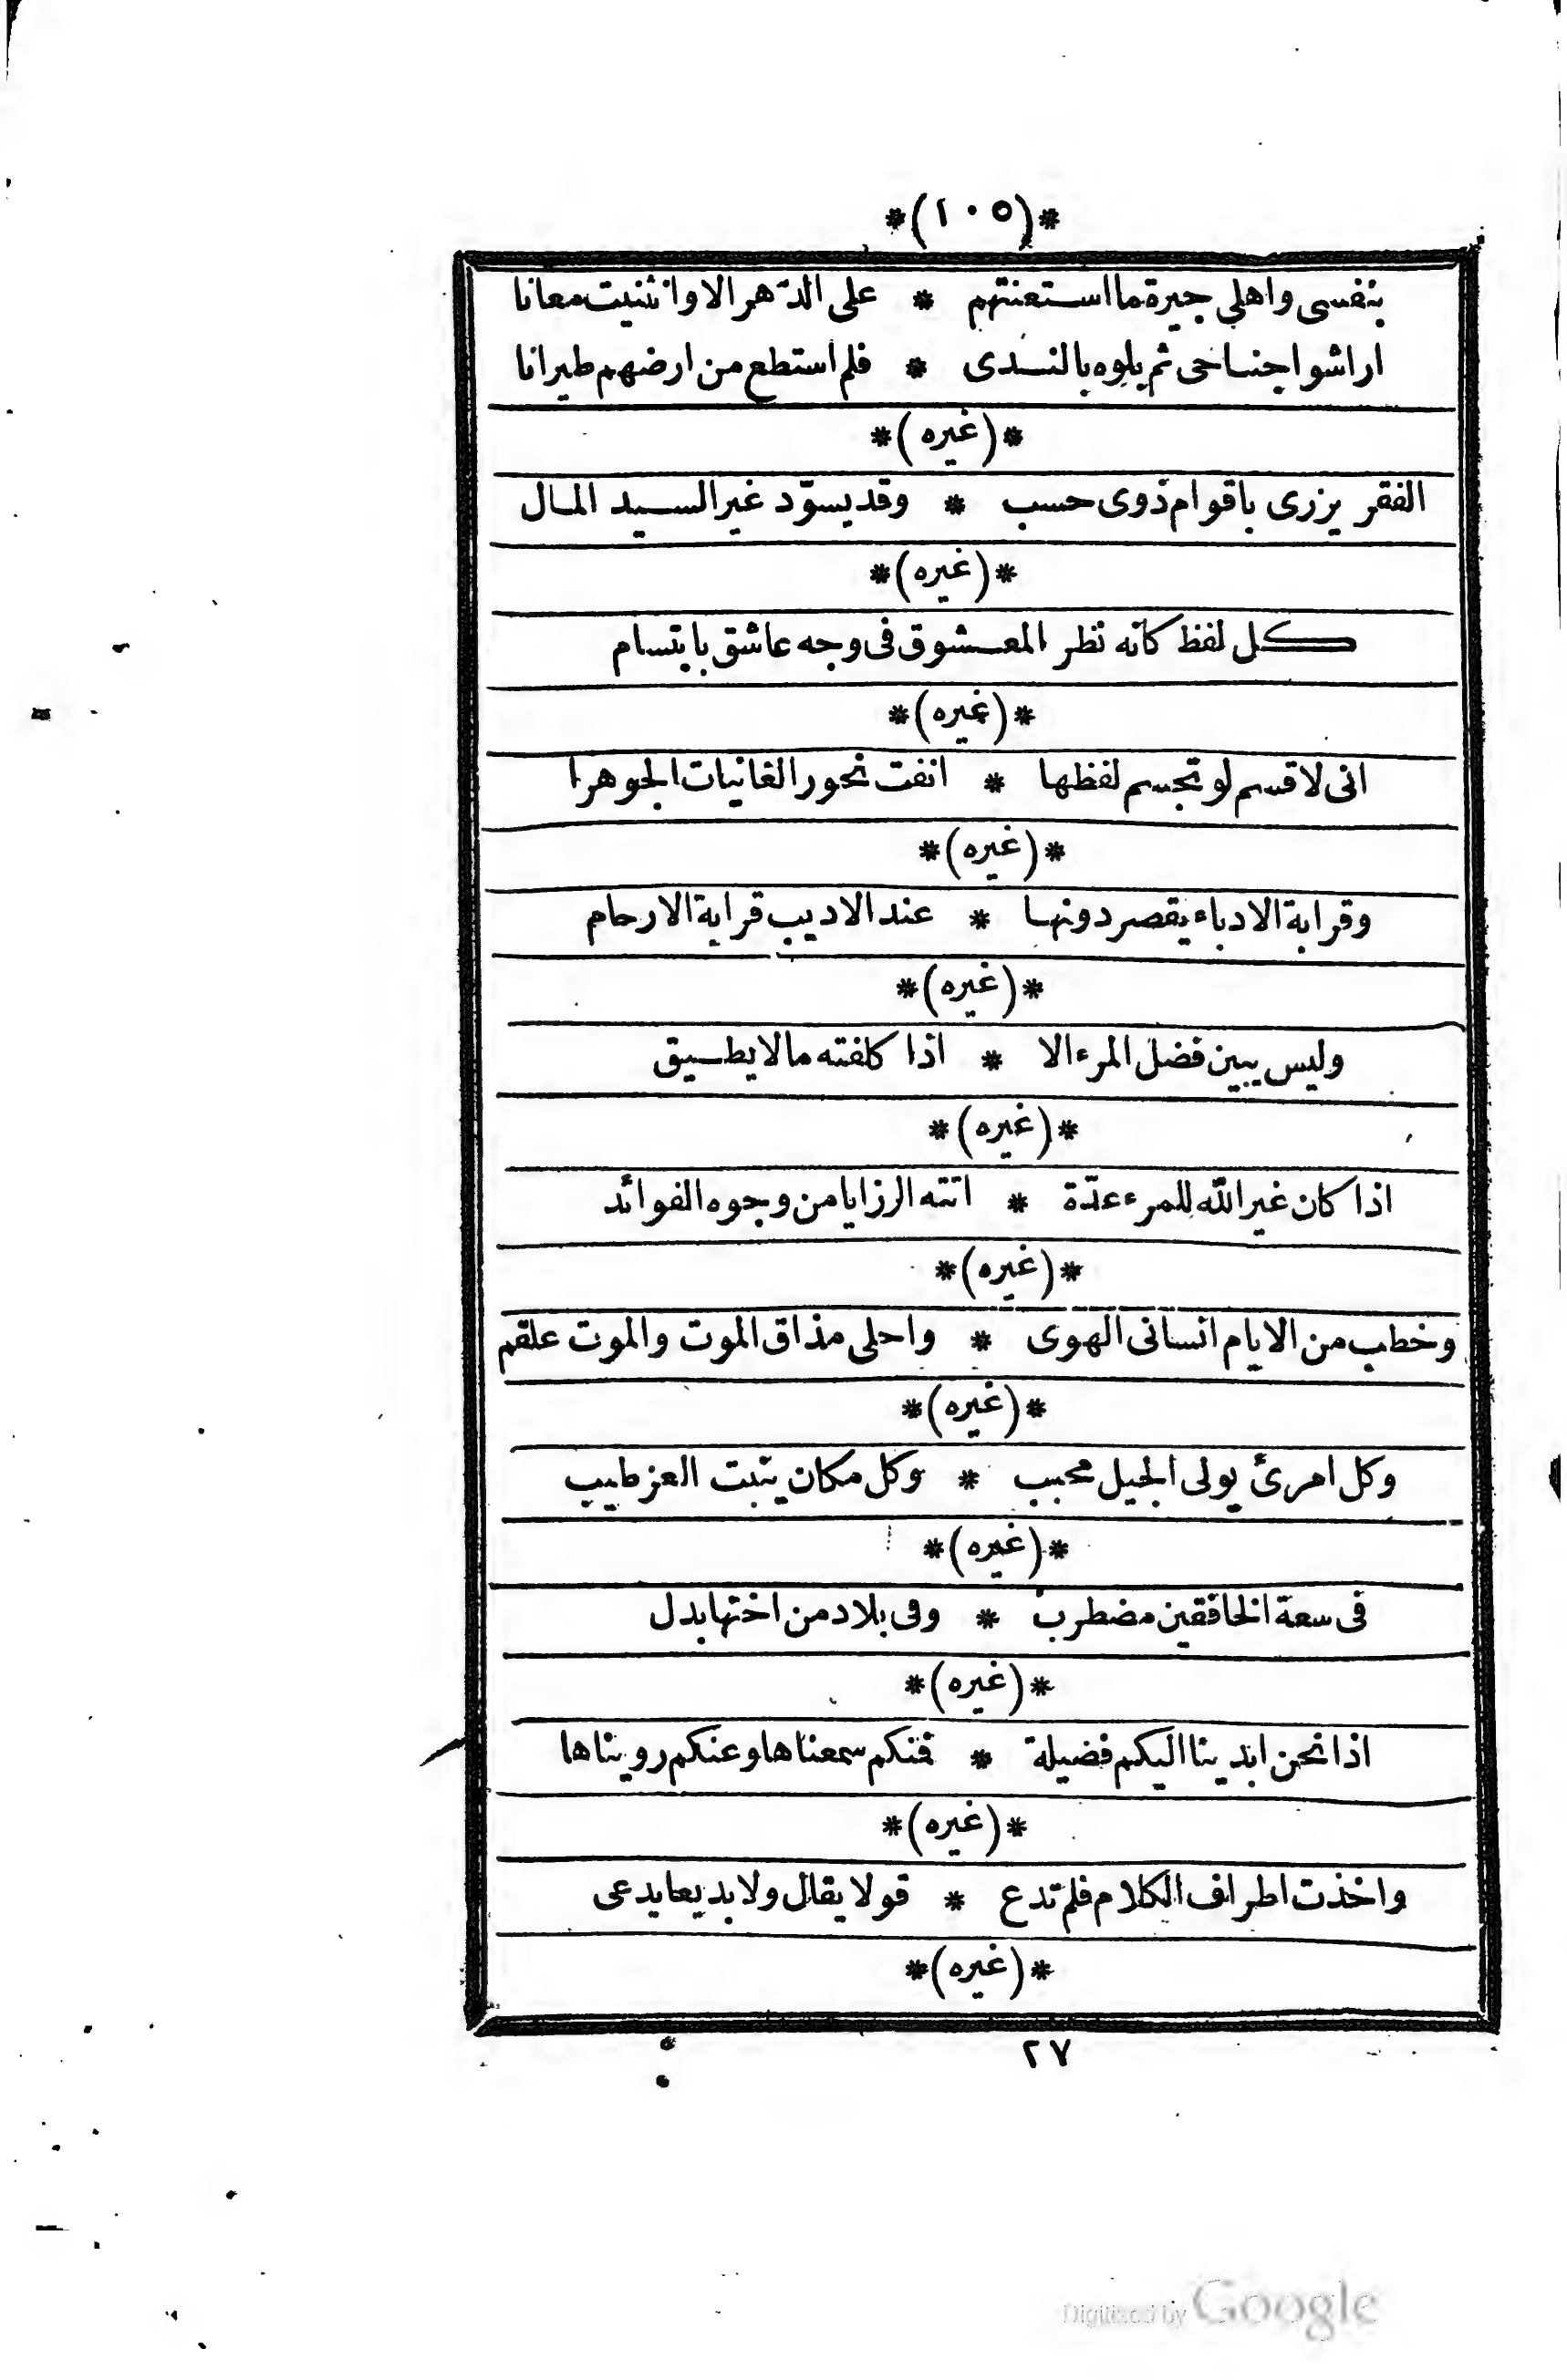 *(١٠٥)*
بنفسى واهلى جيرة ما استعنتهم * على الدّهر الا وانثنيت معانا
اراشوا جناحى ثم بلوه بالندى * فلم استطع من ارضهم طيرانا
*(غيره)*
الفقر يزرى باقوام ذوى حسب * وقد يسوّد غير السيد المال
*(غيره)*
كل لفظ كانه نظر المعشوق فى وجه عاشق بابتسام
*(غيره)*
انى لاقسم لو تجسم لفظها * انفت نحور الغانيات الجوهرا
*(غيره)*
وقرابة الادباء يقصر دونها * عند الاديب قرابة الارحام
*(غيره)*
وليس يبين فضل المرء الا * اذا كلفته ما لا يطيق
*(غيره)*
اذا كان غير الله للمرء عدّة * اتته الرزايا من وجوه الفوائد
*(غيره)*
وخطب من الايام انسانى الهوى * واحلى مذاق الموت والموت علقم
*(غيره)*
وكل امرئ يولى الجميل محبب * وكل مكان ينبت العز طيب
*(غيره)*
فى سعة الخافقين مضطرب * وفى بلاد من اختها بدل
*(غيره)*
اذا نحن ابدينا اليكم فضيلة * فمنكم سمعناها وعنكم رويناها
*(غيره)*
واخذت اطراف الكلام فلم تدع * قولا يقال ولا بديعا يدعى
*(غيره)*
٢٧
Digitized by Google